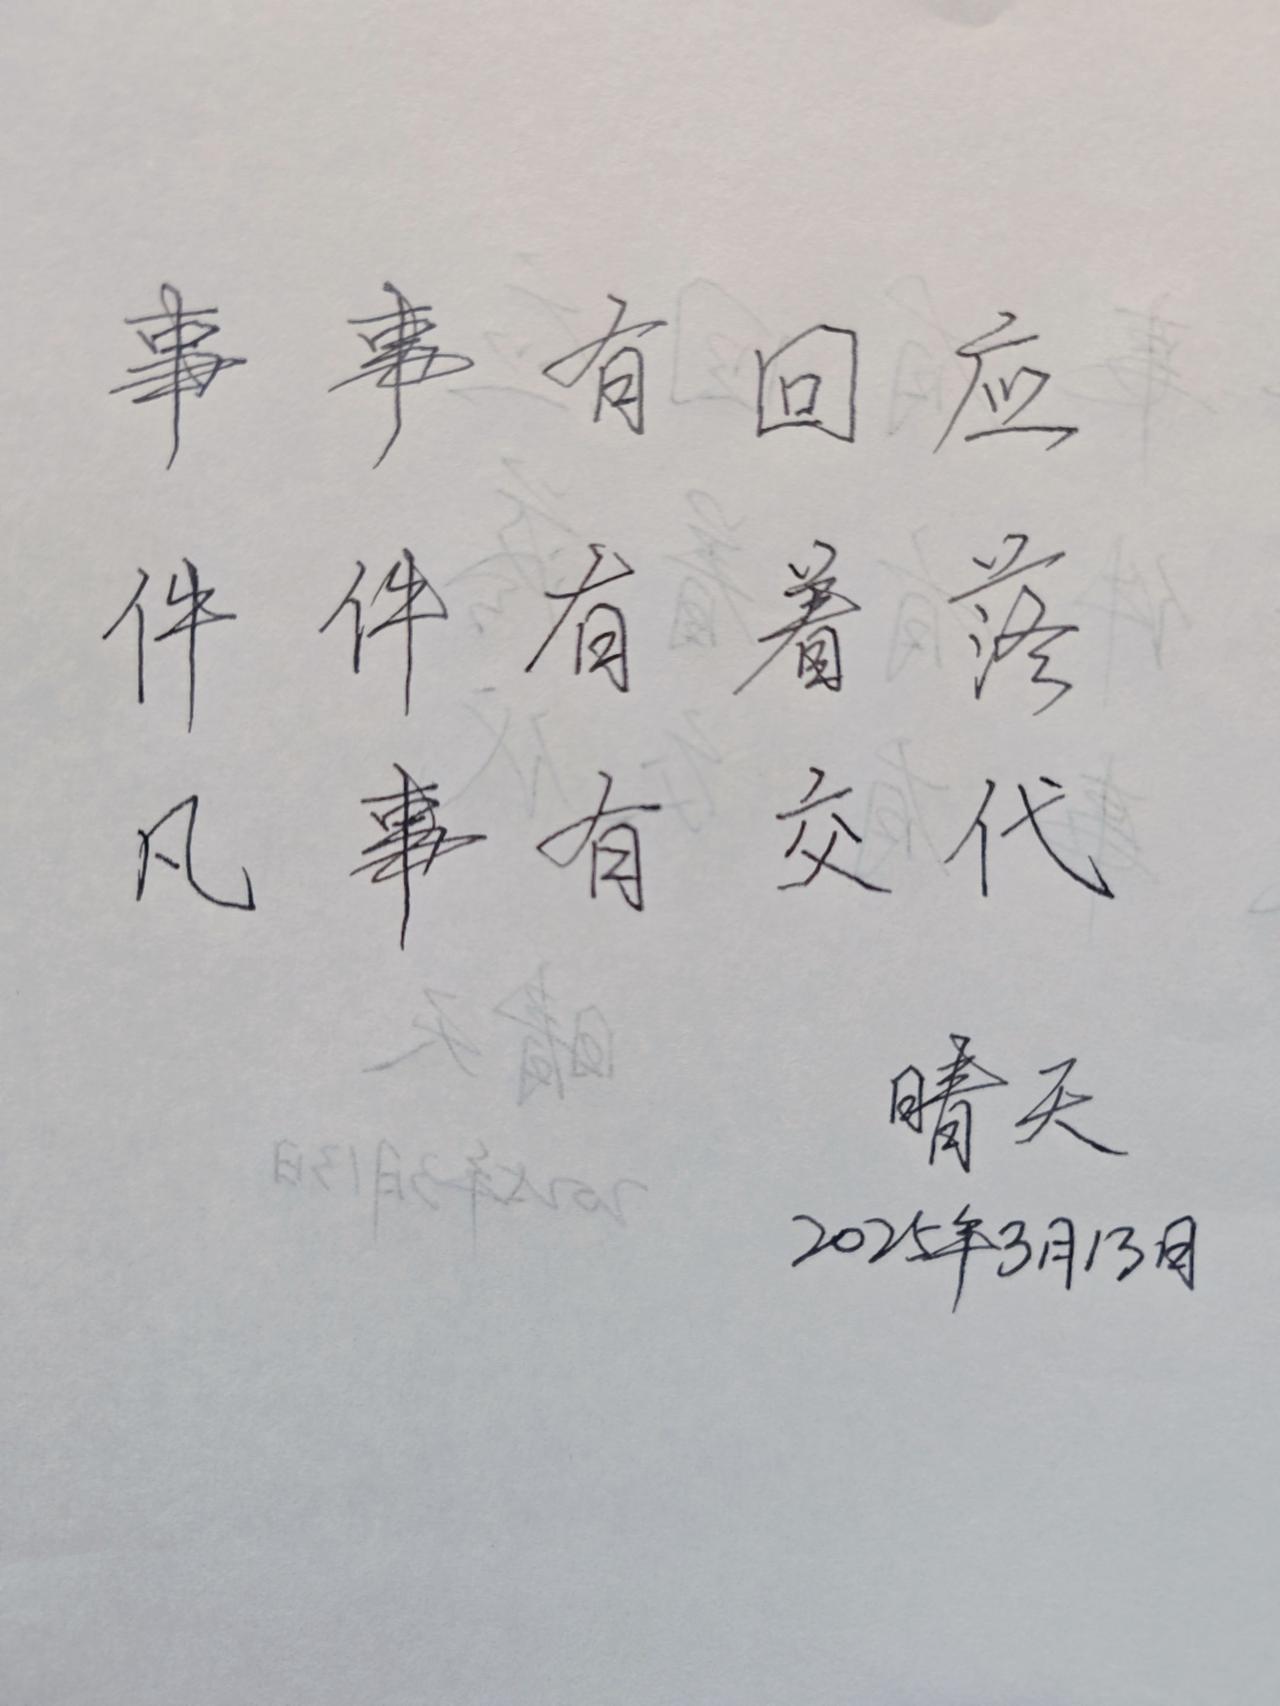 事事有回应
件件有着落
凡事有交代
晴天
2025年3月13日